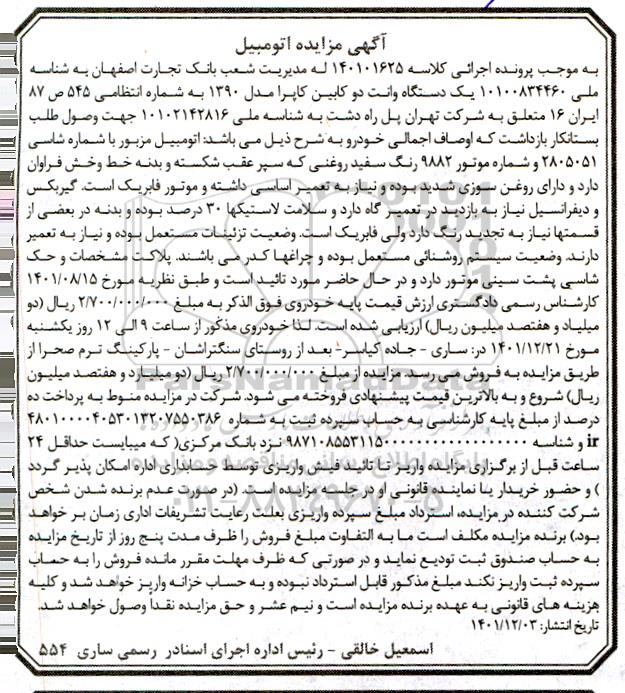 آگهی مزایده اتومبیل
به موجب پرونده اجرائی کلاسه ۱۴۰۱۰۱۶۲۵ له مدیریت شعب بانک تجارت اصفهان به شناسه
ملی ۱۰۱۰۰۸۳۴۴۶۰ یک دستگاه وانت دو کابین کاپرا مدل ۱۳۹۰ به شماره انتظامی ۵۴۵ ص ۸۷
ایران ۱۶ متعلق به شرکت تهران پل راه دشت به شناسه ملی ۱۰۱۰۲۱۴۲۸۱۶ جهت وصول طلب
بستانکار بازداشت که اوصاف اجمالی خودرو به شرح ذیل می باشد: اتومبیل مزبور با شماره شاسی
۲۸۰۵۰۵۱ و شماره موتور ۹۸۸۲ رنگ سفید روغنی که سپر عقب شکسته و بدنه خط وخش فراوان
دارد و دارای روغن سوزی شدید بوده و نیاز به تعمیر اساسی داشته و موتور فابریک است. گیربکس
و دیفرانسیل نیاز به بازدید در تعمیر گاه دارد و سلامت لاستیکها ۳۰ درصد بوده و بدنه در بعضی از
قسمتها نیاز به تجدید رنگ دارد ولی فابریک است. وضعیت تزئینات مستعمل بوده و نیاز به تعمیر
دارند. وضعیت سیستم روشنائی مستعمل بوده و چراغها کدر می باشند. پلاکت مشخصات و حک
شاسی پشت سینی موتور دارد و در حال حاضر مورد تائید است و طبق نظریه مورخ ۱۴۰۱/۰۸/۱۵
کارشناس رسمی دادگستری ارزش قیمت پایه خودروی فوق الذکر به مبلغ ۲/۷۰۰/۰۰۰/۰۰۰ ریال (دو
میلیاد و هفتصد میلیون ریال) ارزیابی شده است. لذا خودروی مذکور از ساعت ۹ الی ۱۲ روز یکشنبه
مورخ ۱۴۰۱/۱۲/۲۱ در: ساری - جاده کیاسر- بعد از روستای سنگتراشان - پارکینگ ترم صحرا از
طریق مزایده به فروش می رسد. مزایده از مبلغ ۲/۷۰۰/۰۰۰/۰۰۰ ریال (دو میلیارد و هفتصد میلیون
ریال) شروع و به بالاترین قیمت پیشنهادی فروخته می شود. شرکت در مزایده منوط به پرداخت ده
درصد از مبلغ پایه کارشناسی به حساب سپرده ثبت به شماره ۴۸۰۱۰۰۰۰۴۰۵۳۰۱۳۲۰۷۵۵۰۳۸۶
ir و شناسه نزد بانک مرکزی( که میبایست حداقل ۲۴
ساعت قبل از برگزاری مزایده واریز تا تائید فیش واریزی توسط حسابداری اداره امکان پذیر گردد
) و حضور خریدار یا نماینده قانونی او در جلسه مزایده است. (در صورت عدم برنده شدن شخص
شرکت کننده در مزایده، استرداد مبلغ سپرده واریزی بعلت رعایت تشریفات اداری زمان بر خواهد
بود.) برنده مزایده مکلف است ما به التفاوت مبلغ فروش را ظرف مدت پنج روز از تاریخ مزایده
به حساب صندوق ثبت تودیع نماید و در صورتی که ظرف مهلت مقرر مانده فروش را به حساب
سپرده ثبت واریز نکند مبلغ مذکور قابل استرداد نبوده و به حساب خزانه واریز خواهد شد و کلیه
هزینه های قانونی به عهده برنده مزایده است و نیم عشر و حق مزایده نقداً وصول خواهد شد.
تاریخ انتشار: ۱۴۰۱/۱۲/۰۳
اسمعیل خالقی - رئیس اداره اجرای اسنادر رسمی ساری ۵۵۴
ParsNamadData